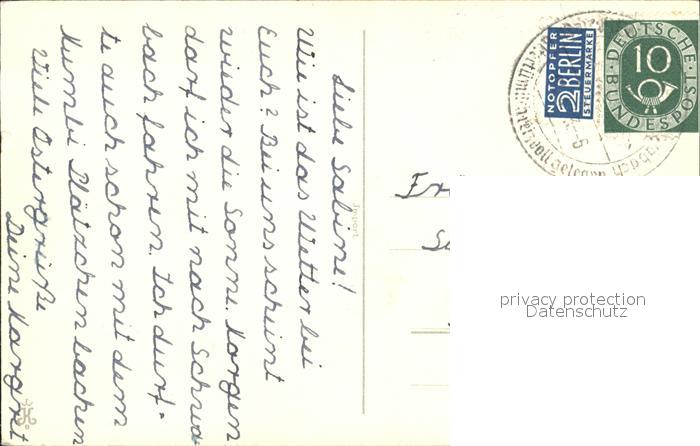 Liebe Sabine!
Wie ist das Wetter bei
Euch? Bei uns scheint
wieder die Sonne. Morgen
darf ich mit nach Schwa
bach fahren. Ich durf-
te auch schon mit dem
Plätzchen backen
Viele Ostergrüße
Deine Margrit
Import
NOTOPFER
2 BERLIN
STEUERMARKE
DEUTSCHE
10
BUNDESPOST
privacy protection
Datenschutz